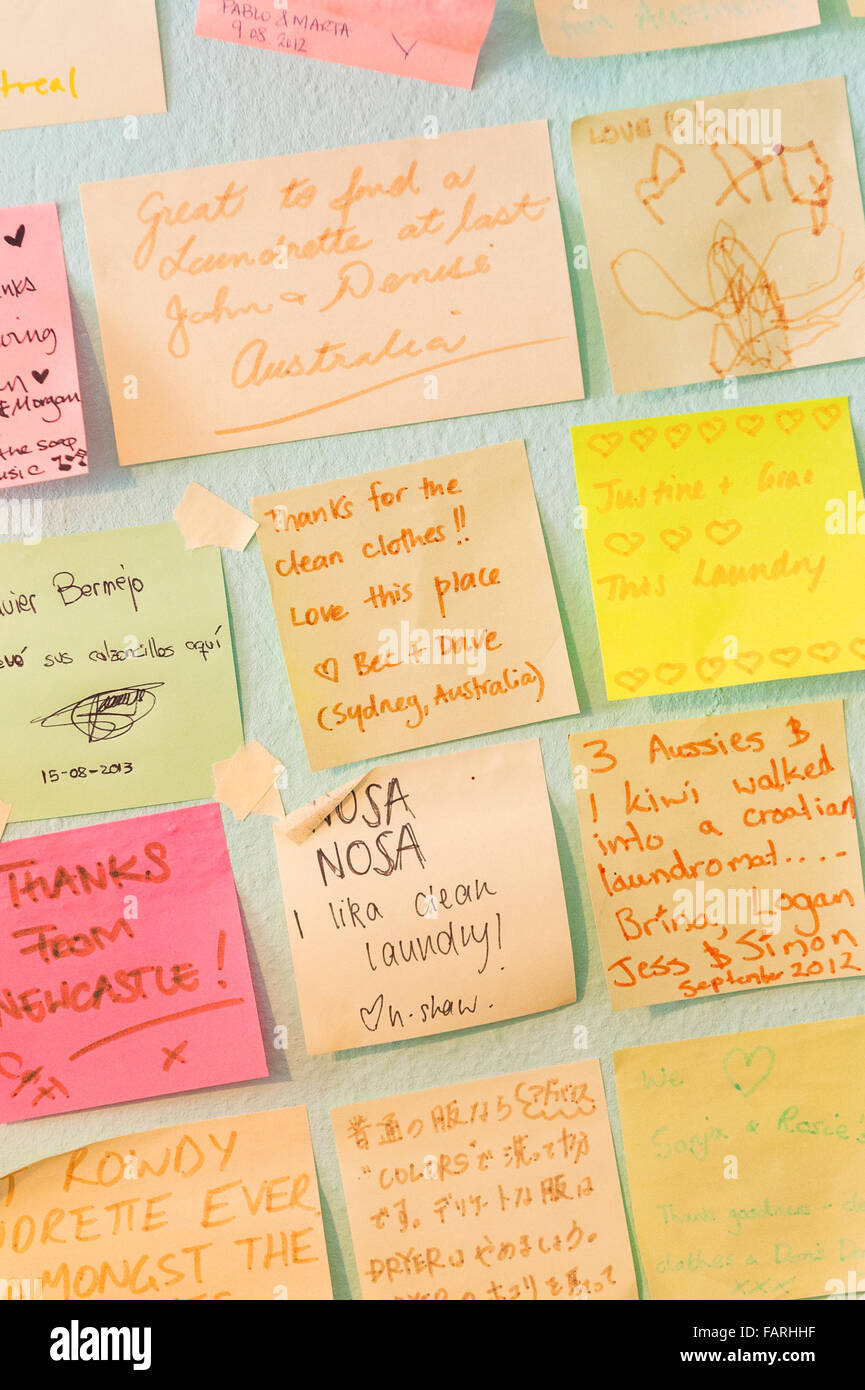 PABLO & MARTA
9.08.2012
treal
Great to find a
Laundrette at last
John & Denise
Australia
LOVE
Morgan
the soap
Thanks for the
clean clothes!!
Love this place
♡ Bec + Dave
(Sydney, Australia)
Justine +
♡ ♡ ♡
This Laundry
Bermejo
sus calzoncillos aquí
15-08-2013
NOSA
NOSA
I lika clean
laundry!
♡ n. shaw.
3 Aussies &
1 kiwi walked
into a croatian
laundromat....-
Brina, Logan
Jess & Simon
September 2012
THANKS
FROM
NEWCASTLE!
x
ROWDY
NDRETTE EVER
AMONGST THE
普通の服なら
"COLORS"で洗って
です。デリケートな服は
DRYERはやめましょう。
DRYER
We ♡
Sanja & Rosie
Thank goodness -
clothes a
xxx
alamy
Image ID: FARHHF
www.alamy.com